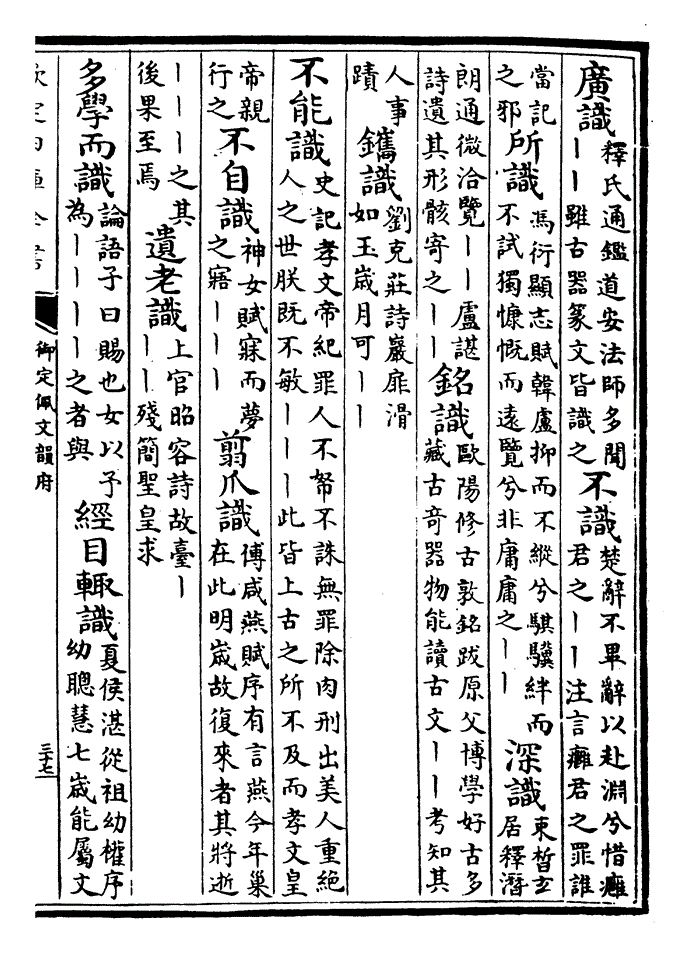 廣識釋氏通鑑道安法師多聞丨丨雖古器篆文皆識之不識楚辭不畢辭以赴淵兮惜癰君之丨丨注言癰君之罪誰
當記之邪所識馮衍顯志賦韓盧抑而不縱兮騏驥絆而不試獨慷慨而遠覽兮非庸庸之丨丨深識東晳玄居釋濳
朗通微洽覽丨丨盧諶詩遺其形骸寄之丨丨銘識歐陽修古敦銘跋原父博學好古多藏古奇器物能讀古文丨丨考知其
人事蹟鑴識劉克莊詩巖扉滑如玉歲月可丨丨
不能識史記孝文帝紀罪人不帑不誅無罪除肉刑出美人重絶人之世朕既不敏丨丨丨此皆上古之所不及而孝文皇
帝親行之不自識神女賦寐而夢之寤丨丨丨翦爪識傅咸燕賦序有言燕今年巢在此明歲故復來者其將逝
丨丨丨之其後果至焉遺老識上官昭容詩故臺丨丨丨殘簡聖皇求
多學而識論語子曰賜也女以予為丨丨丨丨之者與經目輒識夏侯湛從祖幼權序幼聰慧七歲能屬文
欽定四庫全書
御定佩文韻府
三十七